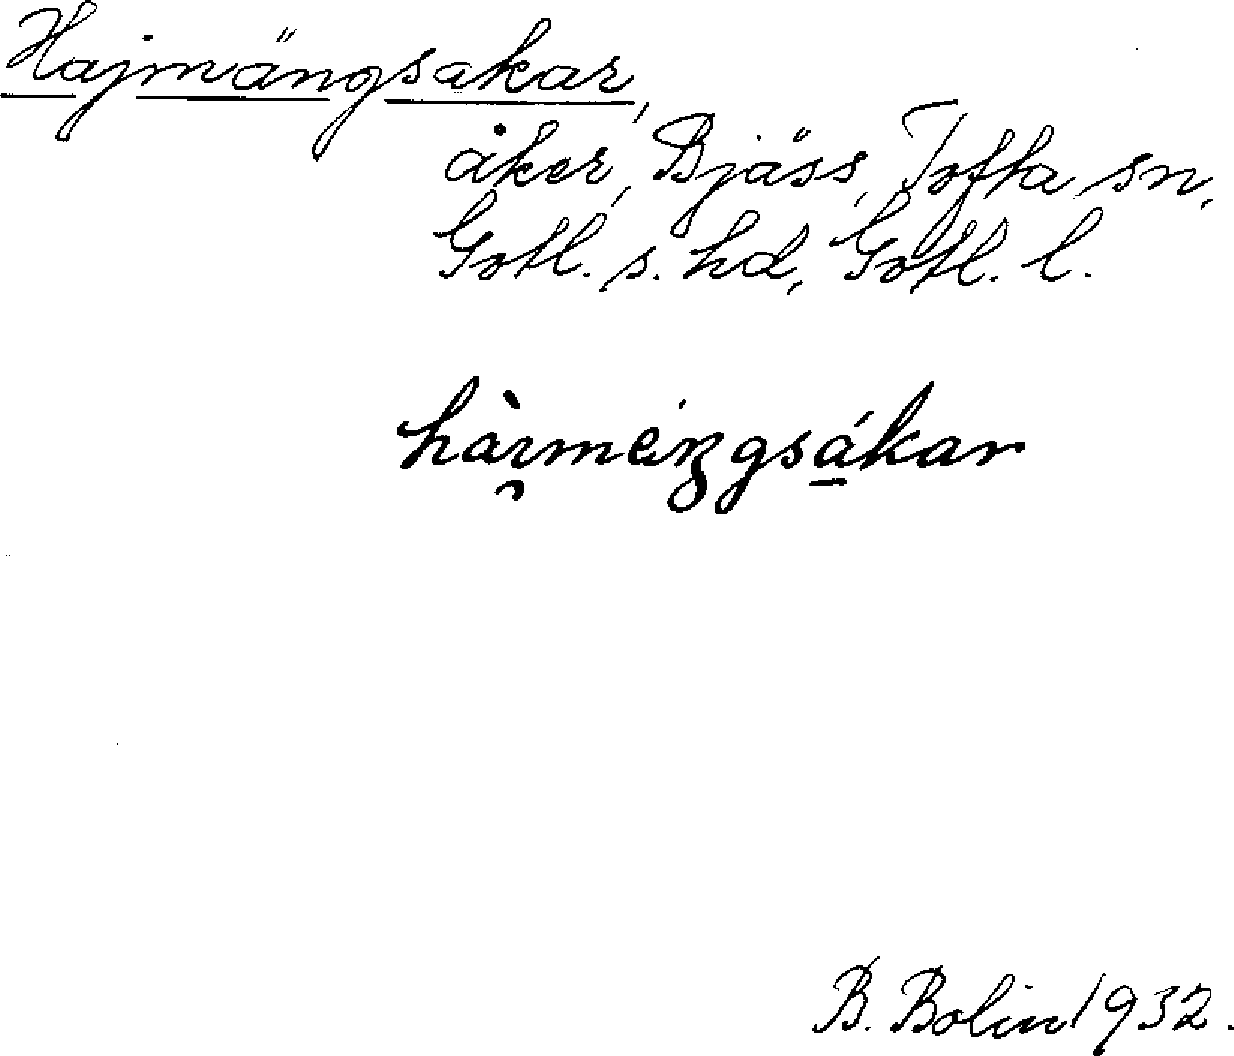 Hajmängsakar,
åker, Bjäss, Tofta sn,
Gotl. s. hd, Gotl. l.
B. Bolin 1932.